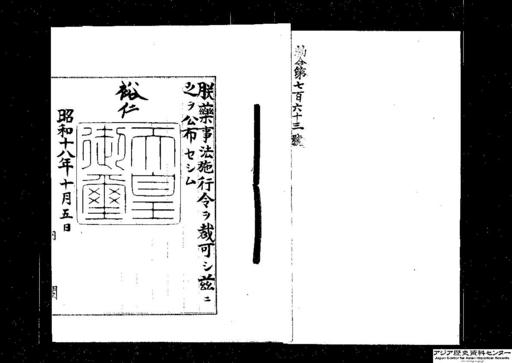 勅令第七百六十三號
朕藥事法施行令ヲ裁可シ茲ニ
之ヲ公布セシム
裕仁
天皇
御璽
昭和十八年十月五日
内閣
アジア歴史資料センター
Japan Center for Asian Historical Records